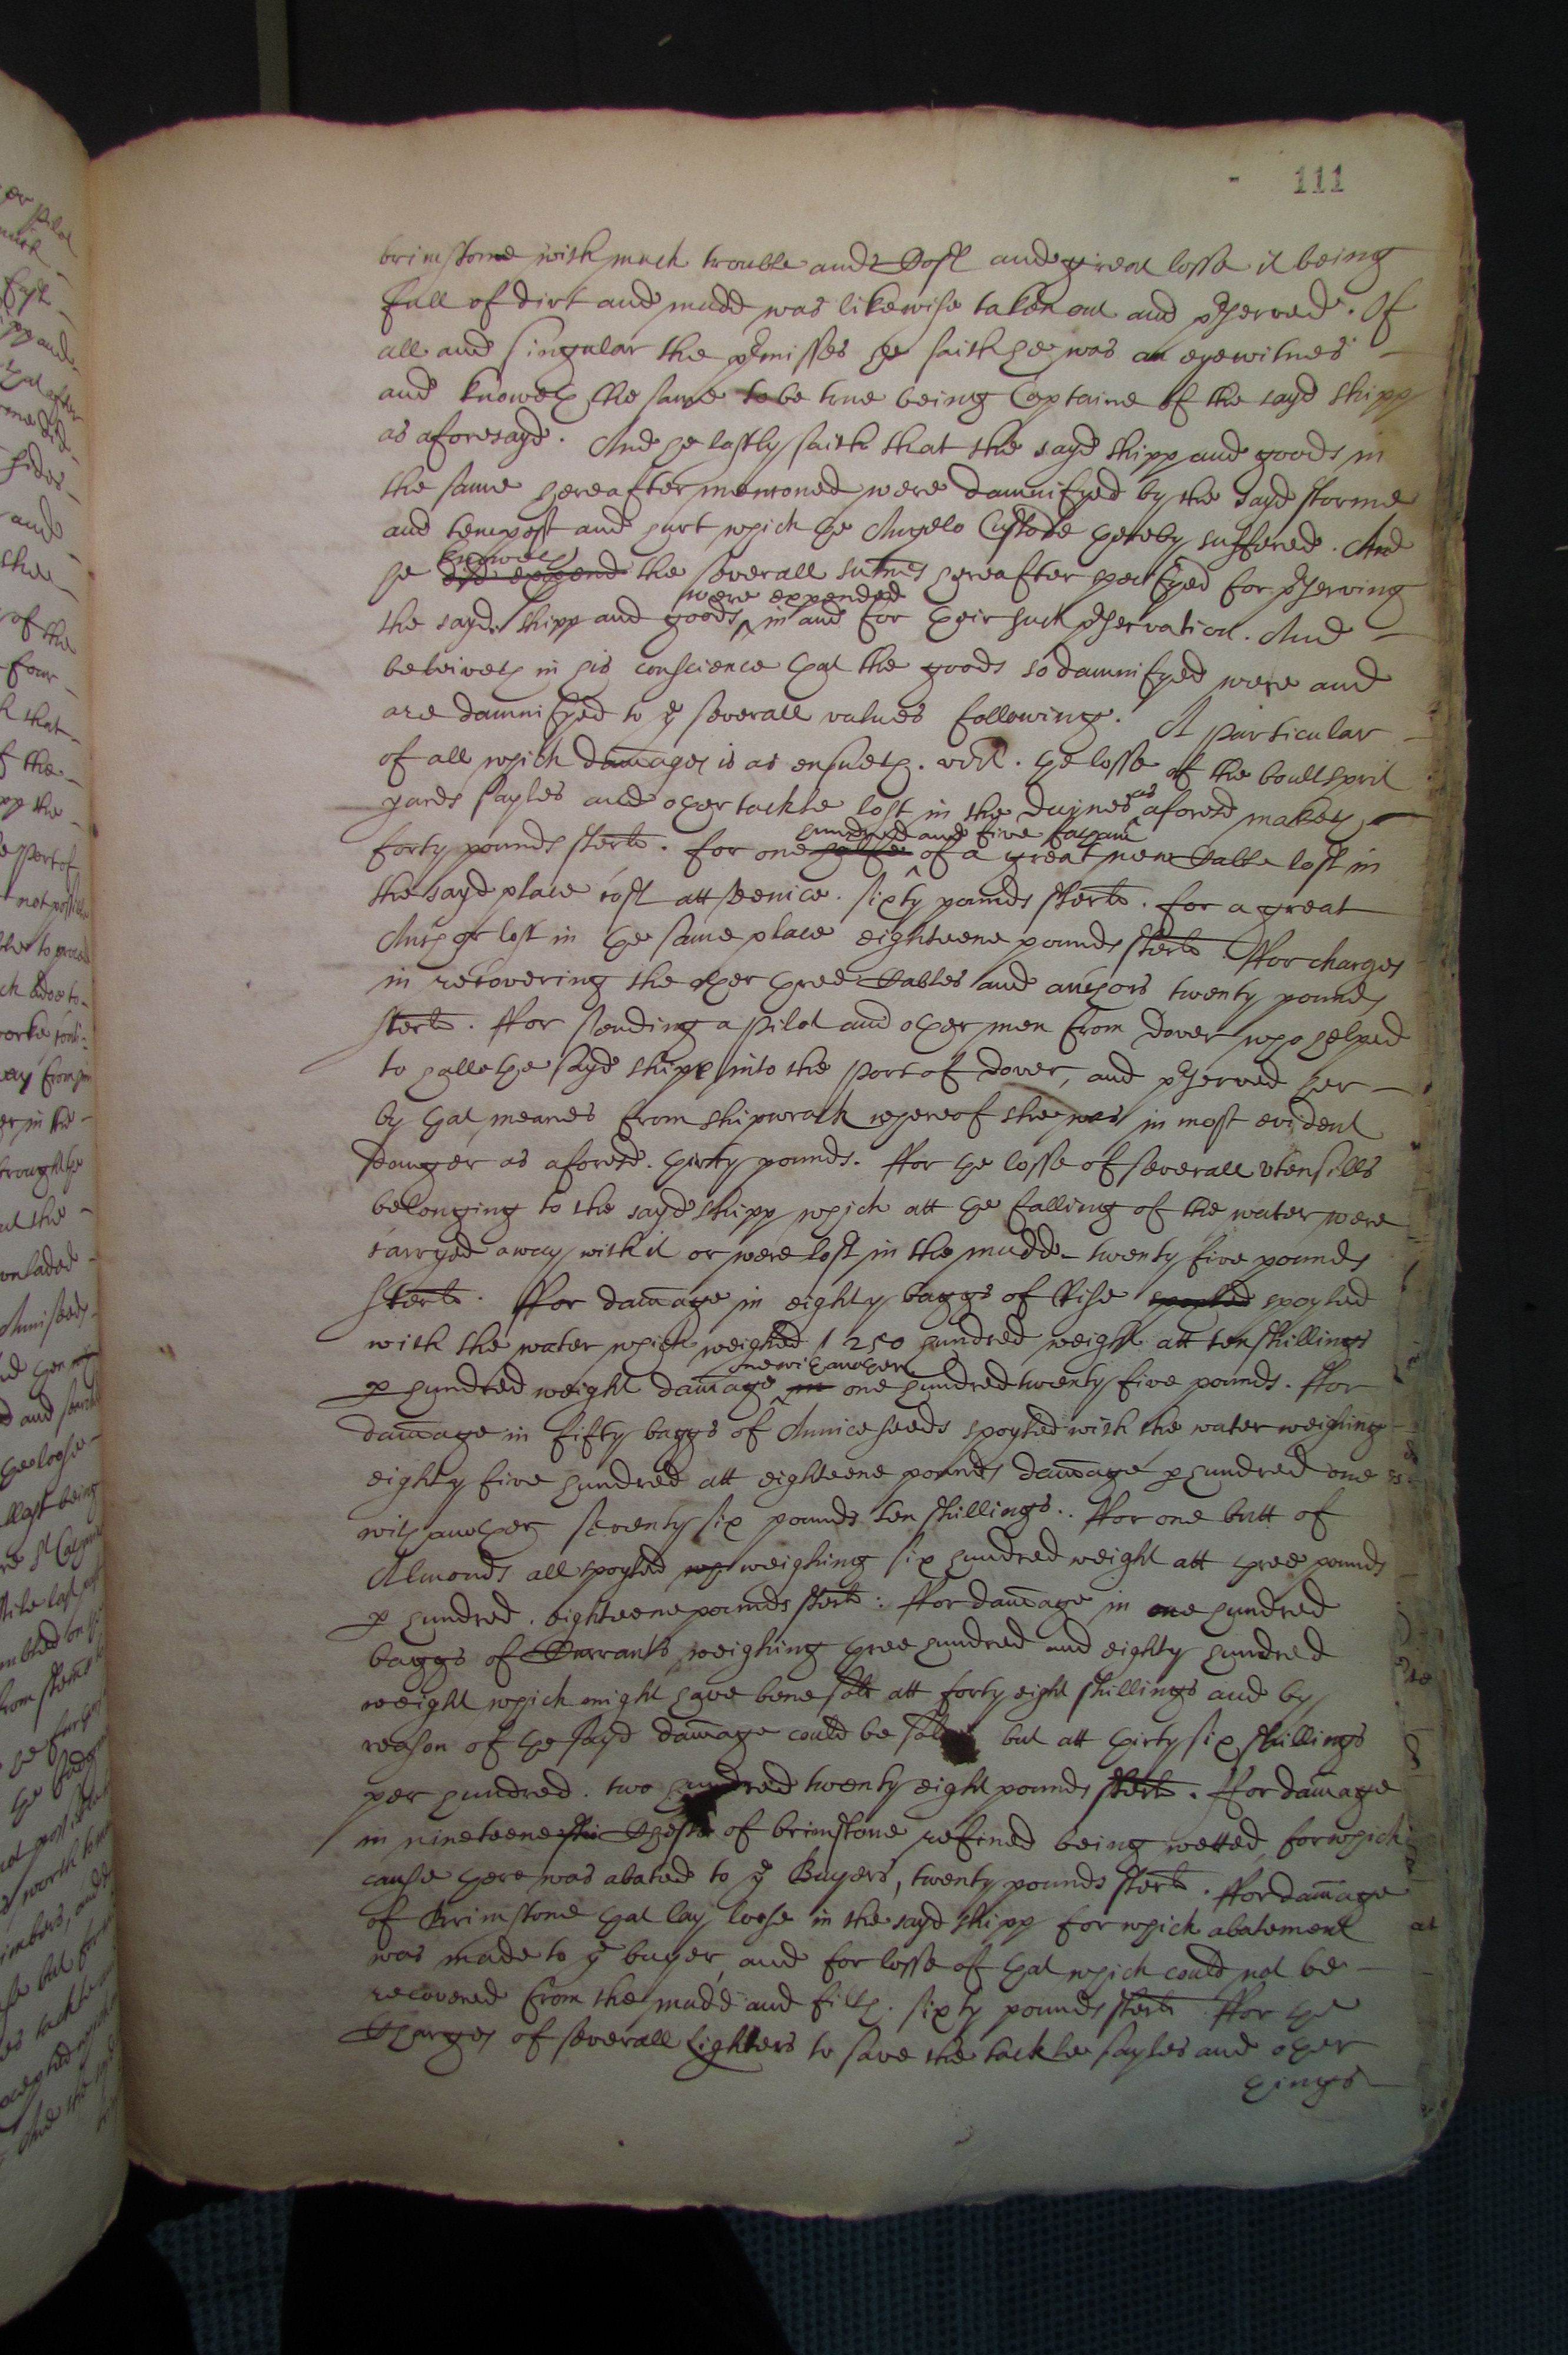 111
brimstone with much trouble and Cost and great losse it being
full of dirt and mudd was likewise taken out and pserved. Of
all and singular the pmisses he saith he was an eyewitnes
and knoweth the same to be true being Captaine of the sayd shipp
as aforesayd. And he lastly saith that the sayd shipp and goods in
the same hereafter mentoned were damnifyed by the sayd storme
and tempest and hurt which the Angelo Custode thereby suffered. And
knoweth
he did expend the severall summes hereafter specifyed for pserving
were expended
the sayd shipp and goods in and for their such pservation. And
beleiveth in his conscience that the goods so damnifyed were and
are damnifyed to ye severall values following. A particular
of all which damages is as ensueth. vizt. the losse of the boultsprit
yards sayles and other tackle lost in the duynes as aforesd maketh
hundred and five fatham
forty pounds sterls. for one halfe of a great new Cable lost in
the sayd place cost att Venice. sixty pounds sterls. for a great
Anchor lost in the same place eighteene pounds sterls ffor charges
in recovering the other three Cables and anchors twenty pounds
sterls. ffor sending a pilot and other men from dover who helped
to halle the sayd shipp into the port of dover, and pserved her
by that meanes from shipwrack whereof she was in most evident
danger as aforesd. thirty pounds. ffor the losse of severall utensills
belonging to the sayd shipp which att the falling of the water were
carryed away with it or were lost in the mudd twenty five pounds
sterls. ffor damage in eighty baggs of Rise spoyled spoyled
with the water which weighed 250 hundred weight att ten shillings
one with another
p hundred weight damage in one hundred twenty five pounds. ffor
damage in fifty baggs of Anniceseeds spoyled with the water weighing
eighty five hundred att eighteene pounds damage p hundred one
with another seventy six pounds ten shillings. ffor one butt of
Almonds all spoyled weighing six hundred weight att three pounds
p hundred. eighteene pounds sterls: ffor damage in one hundred
baggs of Currants weighing three hundred and eighty hundred
weight which might have bene sold att forty eight shillings and by
reason of the sayd damage could be sold but att thirty six shillings
per hundred. two hundred twenty eight pounds sterls. ffor damage
in nineteene Chests of brimstone refined being wetted, for which
cause there was abated to ye Buyers, twenty pounds sterls. ffor damage
of Brimstone that lay loose in the sayd shipp for which abatement
was made to ye buyer, and for losse of that which could not be
recovered from the mudd and filth. sixty pounds sterls ffor the
Charges of severall Lighters to save the tackle sayles and other
things